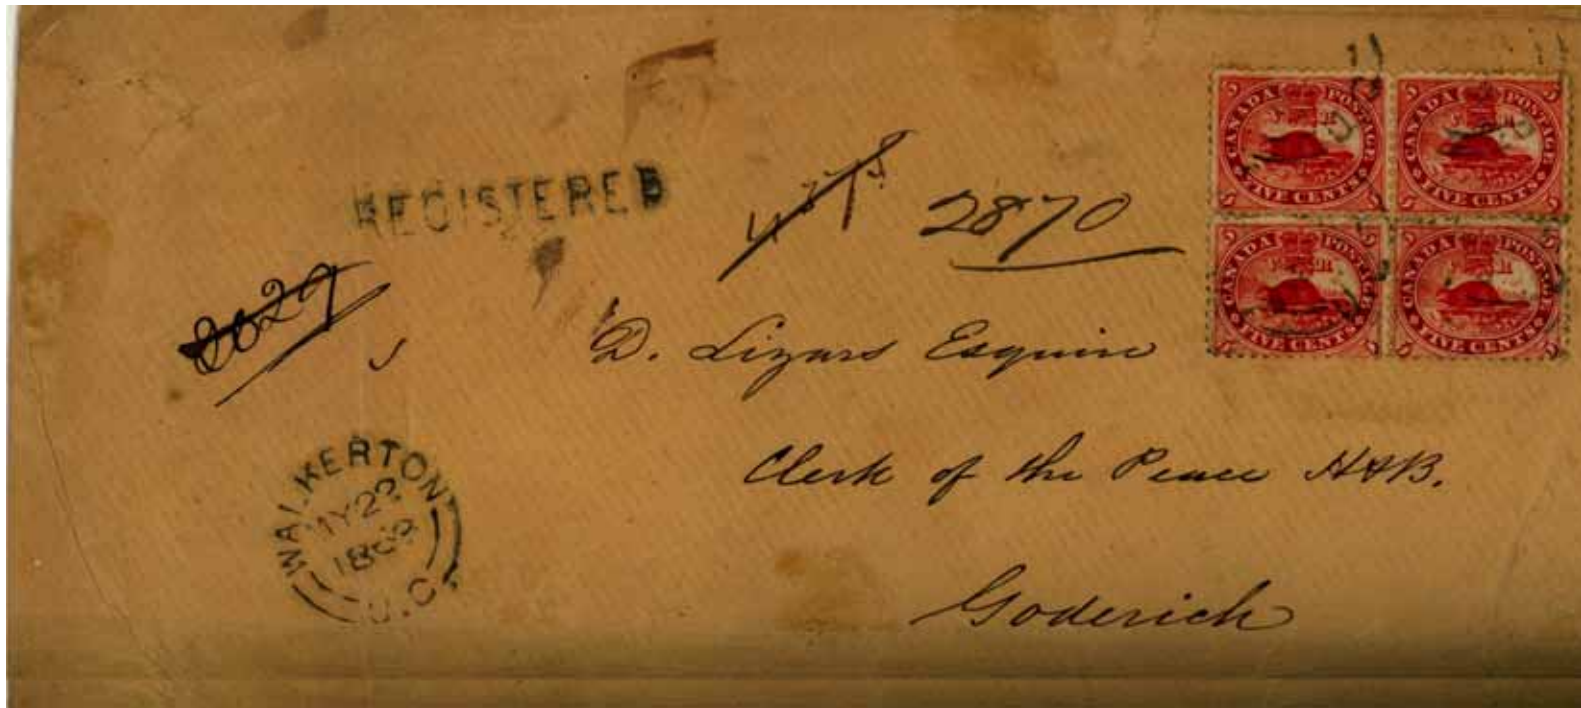 REGISTERED
2870
D. Lizars Esquire
Clerk of the Peace H&B.
Goderich
WALKERTON
MY 22
U.C.
5 5
CANADA POSTAGE
V R
FIVE CENTS
5 5
5 5
CANADA POSTAGE
V R
FIVE CENTS
5 5
5 5
CANADA POSTAGE
V R
FIVE CENTS
5 5
5 5
CANADA POSTAGE
V R
FIVE CENTS
5 5